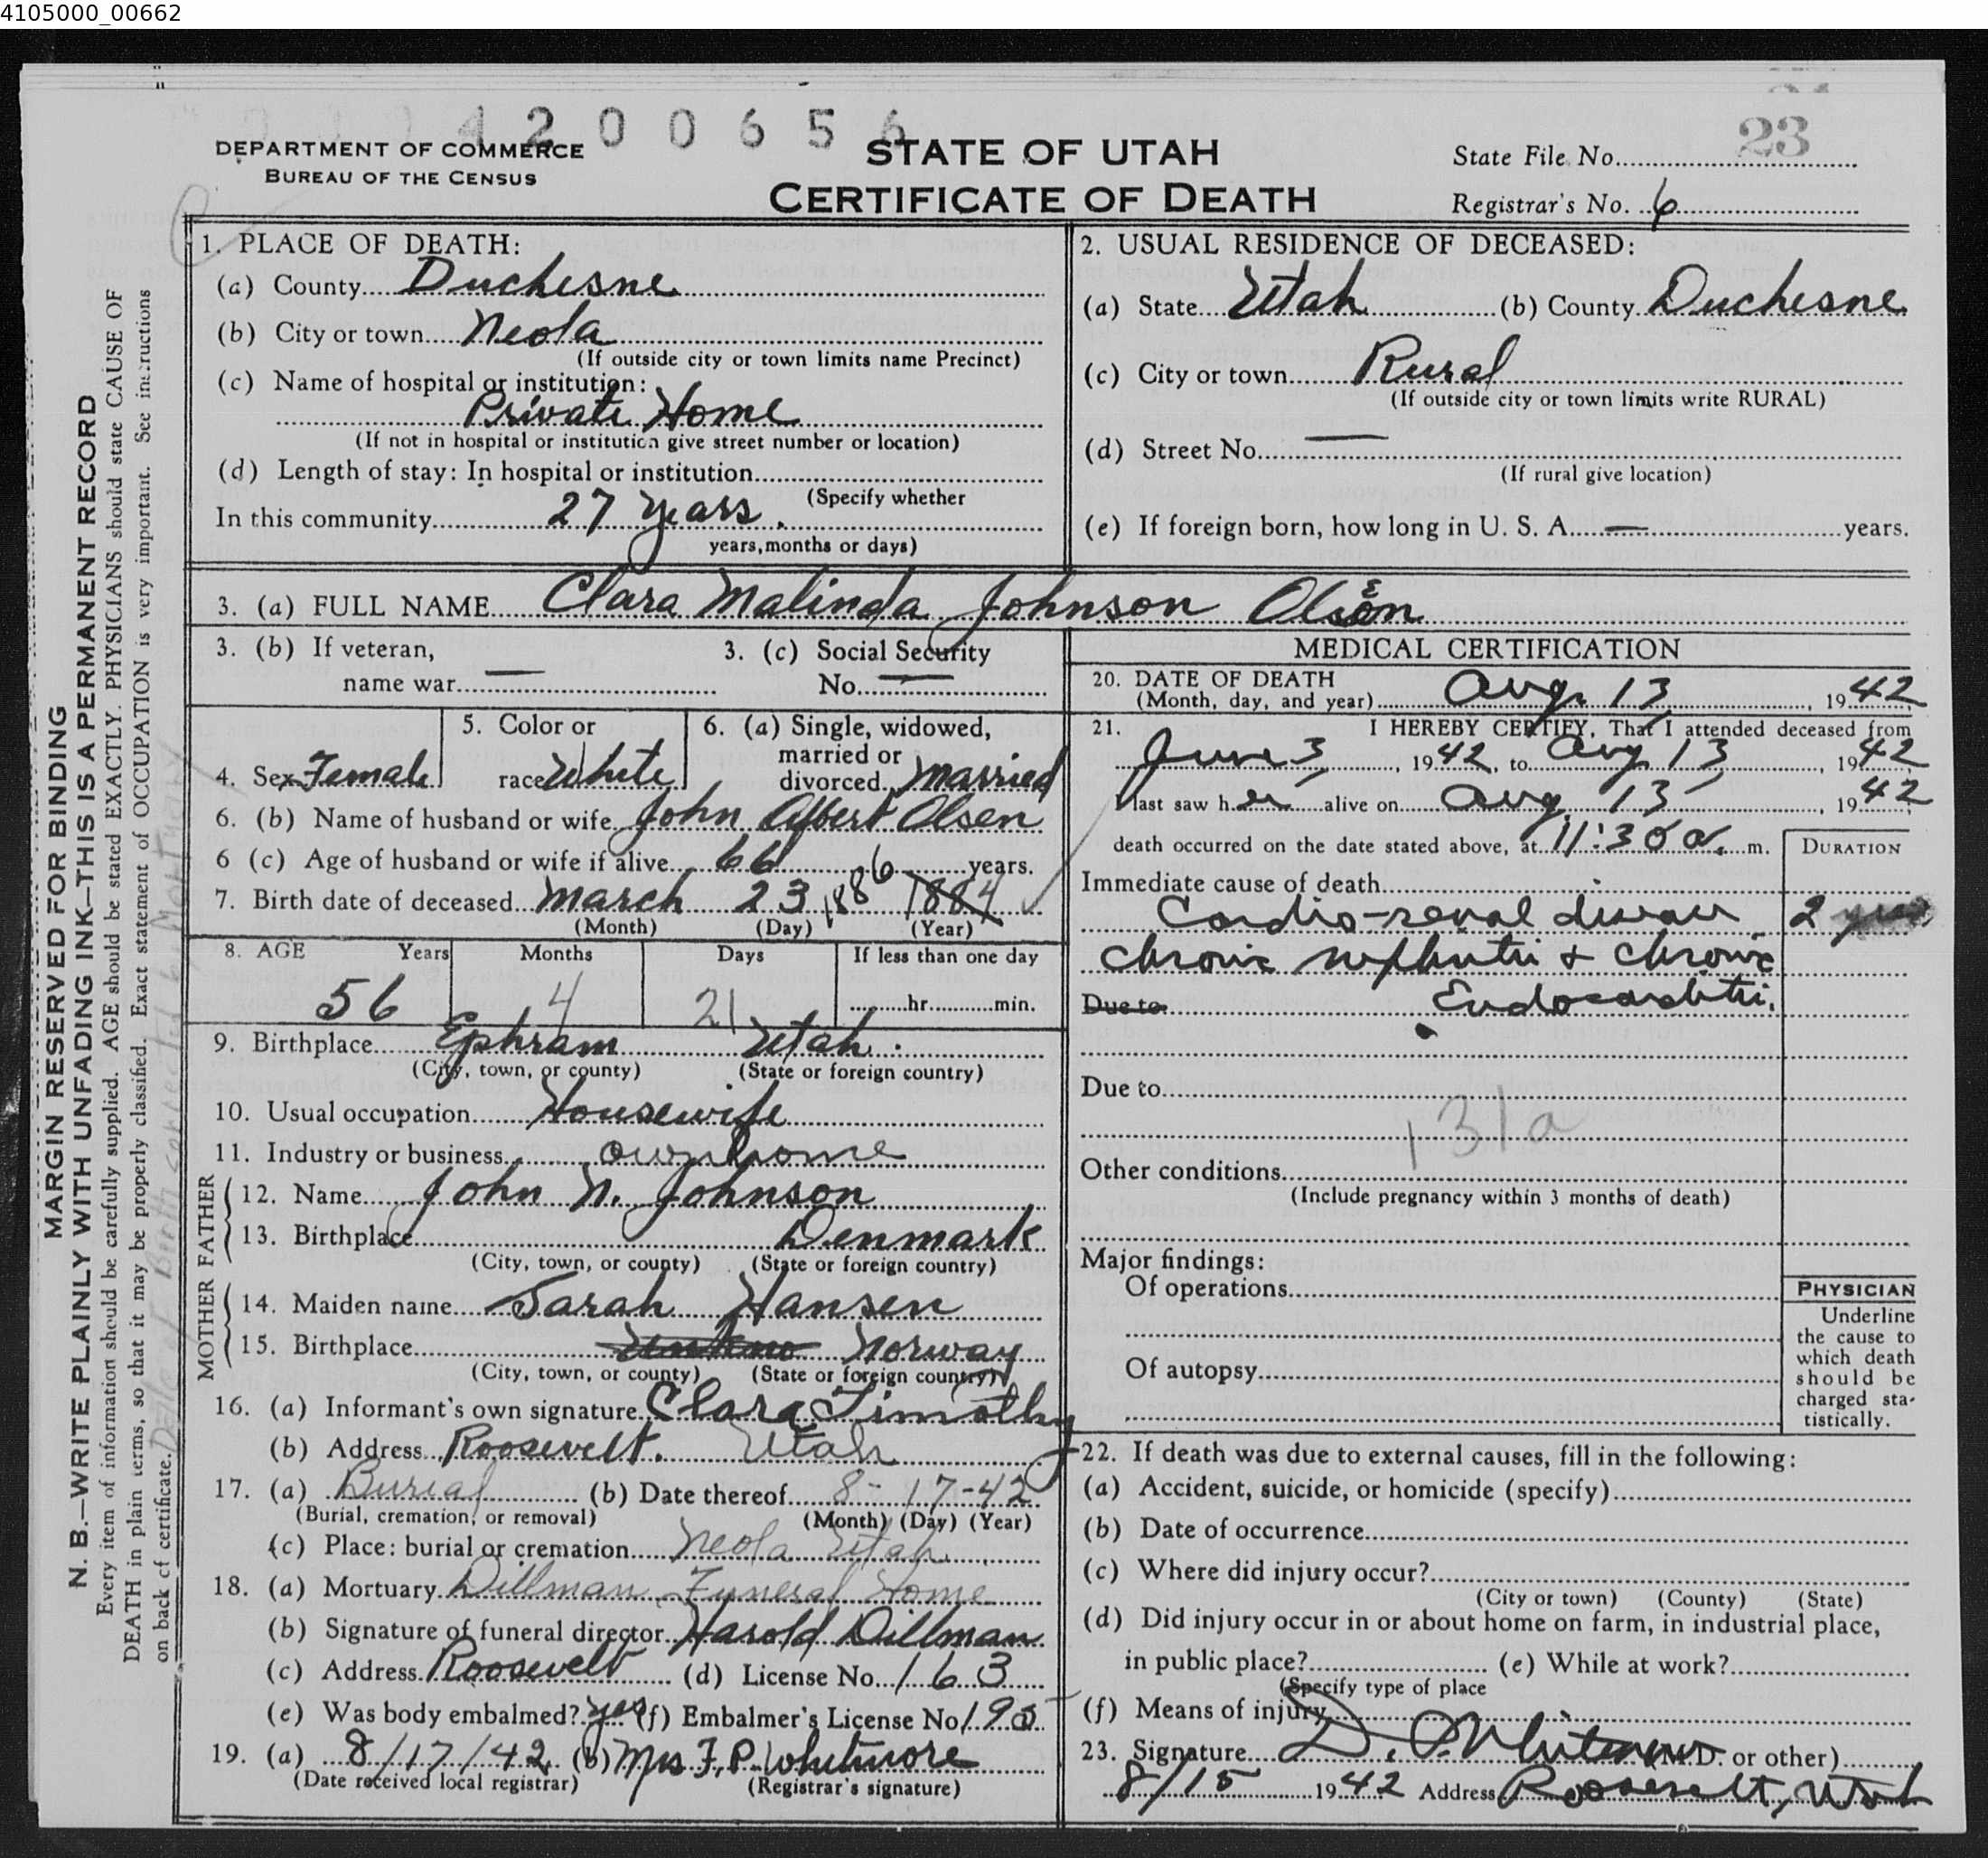 4105000_00662
4 2 0 0 6 5 6
DEPARTMENT OF COMMERCE
BUREAU OF THE CENSUS
STATE OF UTAH
CERTIFICATE OF DEATH
State File No. 23
Registrar's No. 6
MARGIN RESERVED FOR BINDING
N. B.—WRITE PLAINLY WITH UNFADING INK—THIS IS A PERMANENT RECORD
Every item of information should be carefully supplied. AGE should be stated EXACTLY. PHYSICIANS should state CAUSE OF
DEATH in plain terms, so that it may be properly classified. Exact statement of OCCUPATION is very important. See instructions
on back of certificate.
1. PLACE OF DEATH:
(a) County Duchesne
(b) City or town Neola
(If outside city or town limits name Precinct)
(c) Name of hospital or institution:
Private Home
(If not in hospital or institution give street number or location)
(d) Length of stay: In hospital or institution
(Specify whether
In this community 27 years.
years, months or days)
2. USUAL RESIDENCE OF DECEASED:
(a) State Utah (b) County Duchesne
(c) City or town Rural
(If outside city or town limits write RURAL)
(d) Street No. —
(If rural give location)
(e) If foreign born, how long in U. S. A. — years.
3. (a) FULL NAME Clara Malinda Johnson Olson
E
3. (b) If veteran,
name war —
3. (c) Social Security
No. —
4. Sex Female
5. Color or
race White
6. (a) Single, widowed,
married or
divorced Married
6. (b) Name of husband or wife John Albert Olsen
6 (c) Age of husband or wife if alive 66 years.
7. Birth date of deceased March 23 1886 1884
(Month) (Day) (Year)
8. AGE Years Months Days If less than one day
56 4 21 hr. min.
9. Birthplace Ephram Utah.
(City, town, or county) (State or foreign country)
10. Usual occupation Housewife
11. Industry or business own home
FATHER
12. Name John N. Johnson
13. Birthplace Denmark
(City, town, or county) (State or foreign country)
MOTHER
14. Maiden name Sarah Hansen
15. Birthplace Norway
(City, town, or county) (State or foreign country)
16. (a) Informant's own signature Clara Timothy
(b) Address Roosevelt. Utah
17. (a) Burial (b) Date thereof 8-17-42
(Burial, cremation, or removal) (Month) (Day) (Year)
(c) Place: burial or cremation Neola Utah
18. (a) Mortuary Dillman Funeral Home
(b) Signature of funeral director Harold Dillman
(c) Address Roosevelt (d) License No. 163
(e) Was body embalmed? yes (f) Embalmer's License No. 195
19. (a) 8/17/42 (b) Mrs F. P. Whitmore
(Date received local registrar) (Registrar's signature)
MEDICAL CERTIFICATION
20. DATE OF DEATH
(Month, day, and year) Aug. 13, 1942
21. I HEREBY CERTIFY, That I attended deceased from
June 3, 1942, to Aug 13, 1942
I last saw her alive on Aug. 13, 1942
death occurred on the date stated above, at 11:30 a. m.
DURATION
Immediate cause of death
Cardio-renal disease 2
chronic nephritis & chronic
Due to Endocarditis.
Due to
131a
Other conditions
(Include pregnancy within 3 months of death)
Major findings:
Of operations
Of autopsy
PHYSICIAN
Underline
the cause to
which death
should be
charged sta-
tistically.
22. If death was due to external causes, fill in the following:
(a) Accident, suicide, or homicide (specify)
(b) Date of occurrence
(c) Where did injury occur?
(City or town) (County) (State)
(d) Did injury occur in or about home on farm, in industrial place,
in public place? (e) While at work?
(Specify type of place
(f) Means of injury
23. Signature (M.D. or other)
8/15 1942 Address Roosevelt, Utah